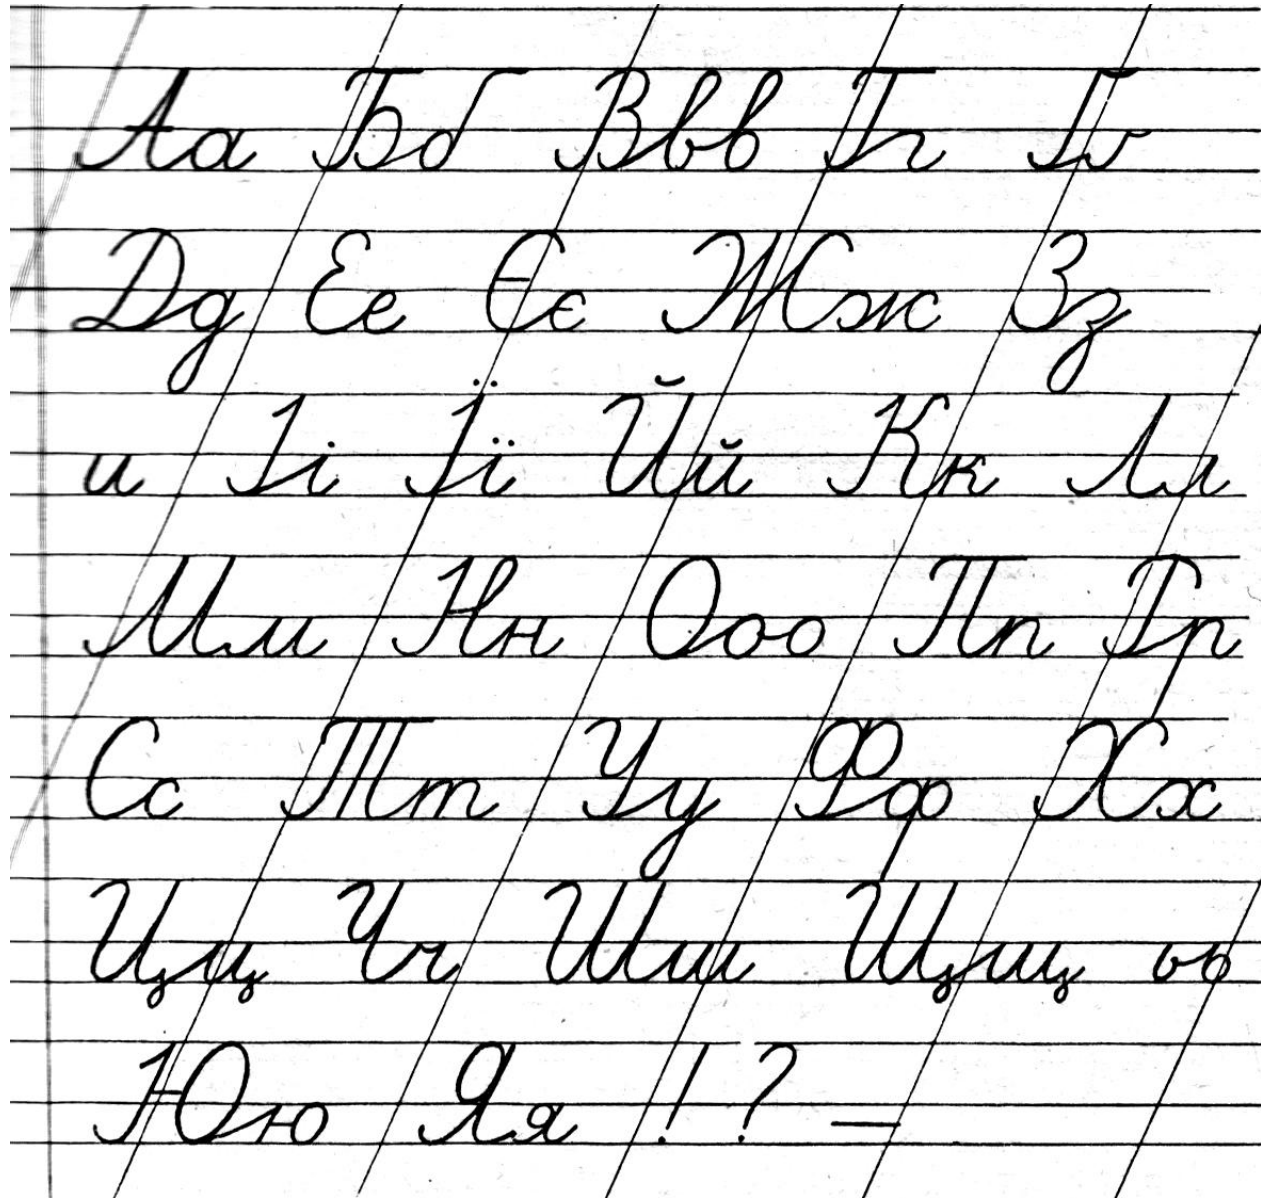 Аа Бб Ввв Гг Ґґ
Дд Ее Єє Жж Зз
и Іі Її Йй Кк Лл
Мм Нн Ооо Пп Рр
Сс Тт Уу Фф Хх
Цц Чч Шш Щщ ьь
Юю Яя ! ? —